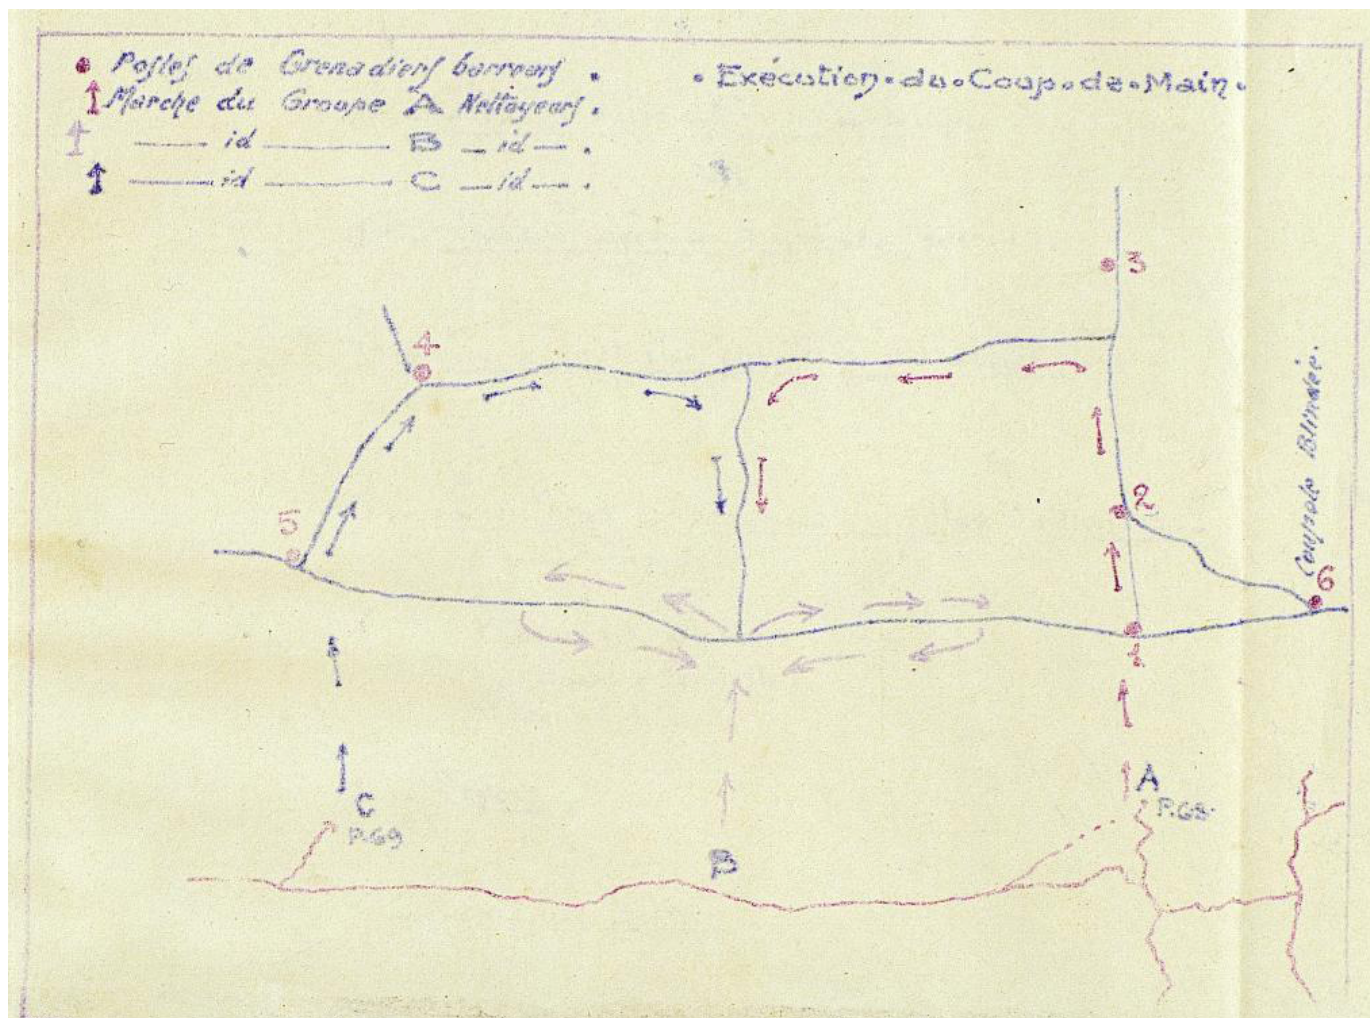 Postes de Grenadiers barreurs .
Marche du Groupe A Nettoyeurs .
— id — B — id — .
— id — C — id — .
• Exécution • du • Coup • de • Main •
3
4
2
5
Coupole Blindée.
6
1
A
P.68.
C
P.69
B